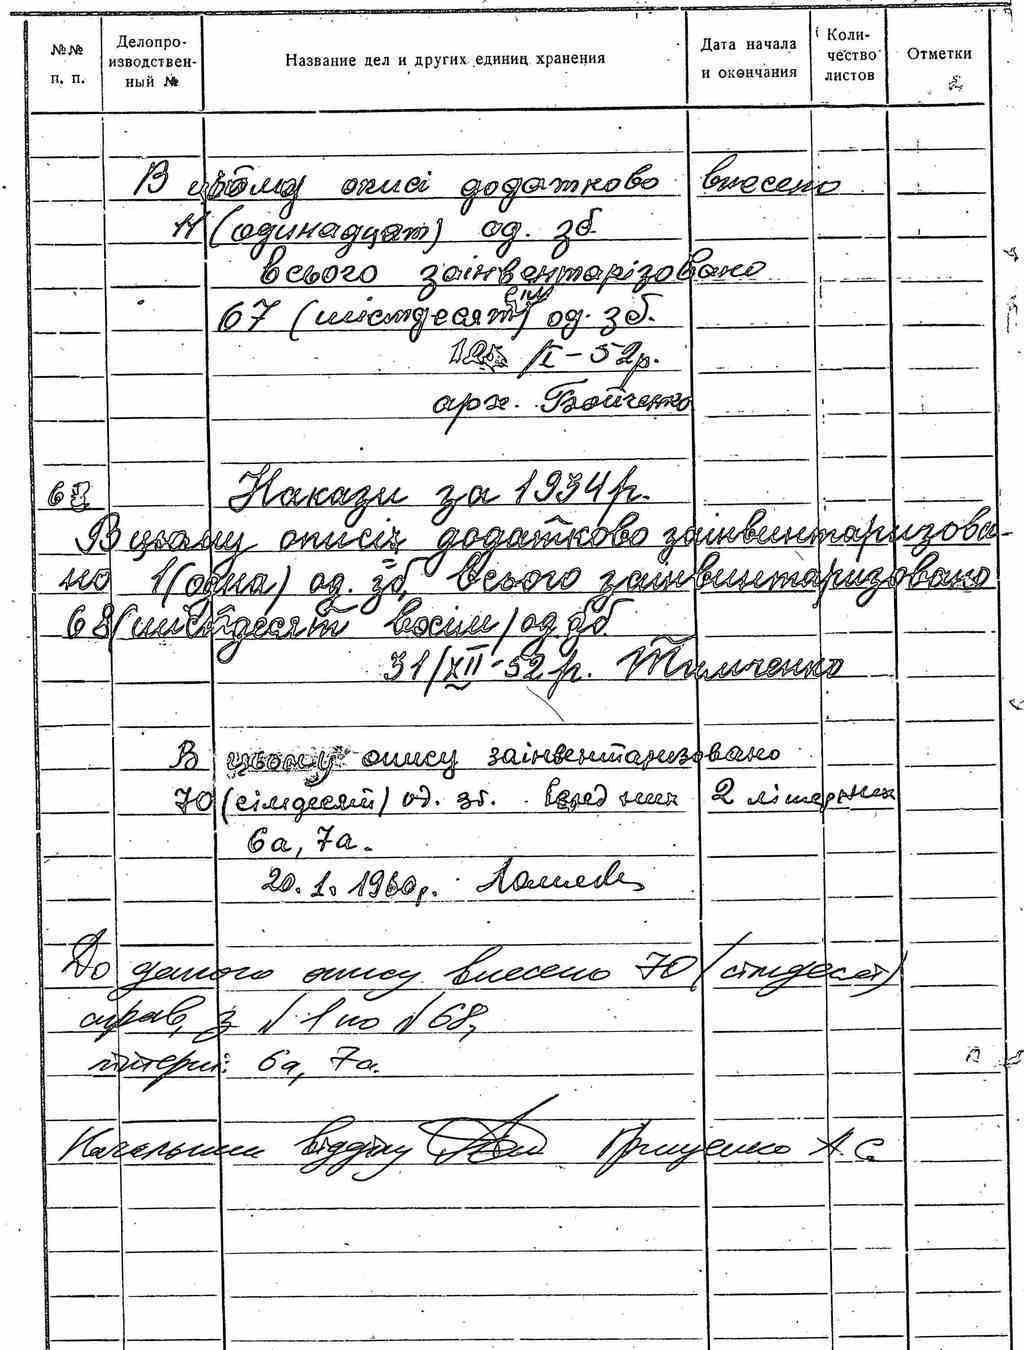 №№ п. п.
Делопроизводственный №
Название дел и других единиц хранения
Дата начала и окончания
Количество листов
Отметки
В цьому описі додатково внесено
11 (одинадцят) од. зб.
всього заінвентарізовано
67 (шістдесят сім) од. зб.
/І – 52р.
арх. Бойченко
68 Накази за 1934 р.
В цьому описі додатково заінвинтаризова-
но 1 (одна) од. зб. Всього заінвинтаризовано
68 (шістдесят восім) од. зб.
31/XII-52 р. Тимченко
В цьому опису заінвентаризовано
70 (сімдесят) од. зб. серед них 2 літерних
6а, 7а.
20. 1. 1960р.
До даного опису внесено 70 (сімдесят)
справ, з № 1 по № 68,
літерні: 6а, 7а.
Начальник відділу Грищенко А. С.